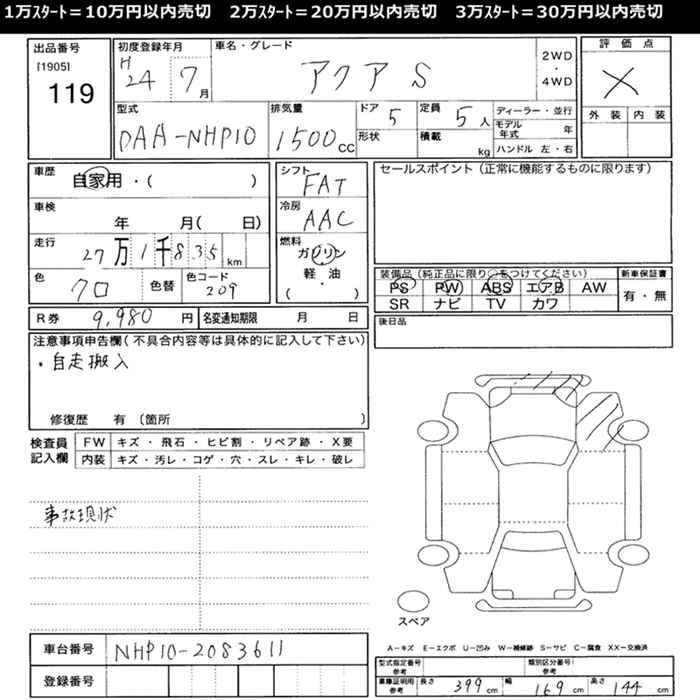 1万スタート＝10万円以内売切　2万スタート＝20万円以内売切　3万スタート＝30万円以内売切
出品番号
[1905]
119
初度登録年月
H
24 7月
車名・グレード
アクア S
2WD
・
4WD
評価点
X
外装 内装
型式
DAA-NHP10
排気量
1500cc
ドア 5
形状
定員 5人
積載 kg
ディーラー・並行
モデル年式 年
ハンドル 左・右
車歴
自家用・( )
車検
年 月( 日)
走行
27万1千835km
色
クロ
色替
色コード
209
シフト
FAT
冷房
AAC
燃料
ガソリン
軽・油
( ・ )
セールスポイント(正常に機能するものに限ります)
装備品(純正品に限り○をつけてください)
PS PW ABS エアB AW
SR ナビ TV カワ
新車保証書
有・無
R券 9,980円
名変通知期限 月 日
後日品
注意事項申告欄(不具合内容等は具体的に記入して下さい)
・自走搬入
修復歴 有 〔箇所 〕
検査員記入欄
FW キズ・飛石・ヒビ割・リペア跡・X要
内装 キズ・汚レ・コゲ・穴・スレ・キレ・破レ
事故現状
スペア
車台番号 NHP10-2083611
登録番号
A－キズ E－エクボ U－凹み W－補修跡 S－サビ C－腐食 XX－交換済
型式指定番号 参考
類別区分番号 参考
車庫証明用 参考 長さ 399cm 幅 169cm 高さ 144cm